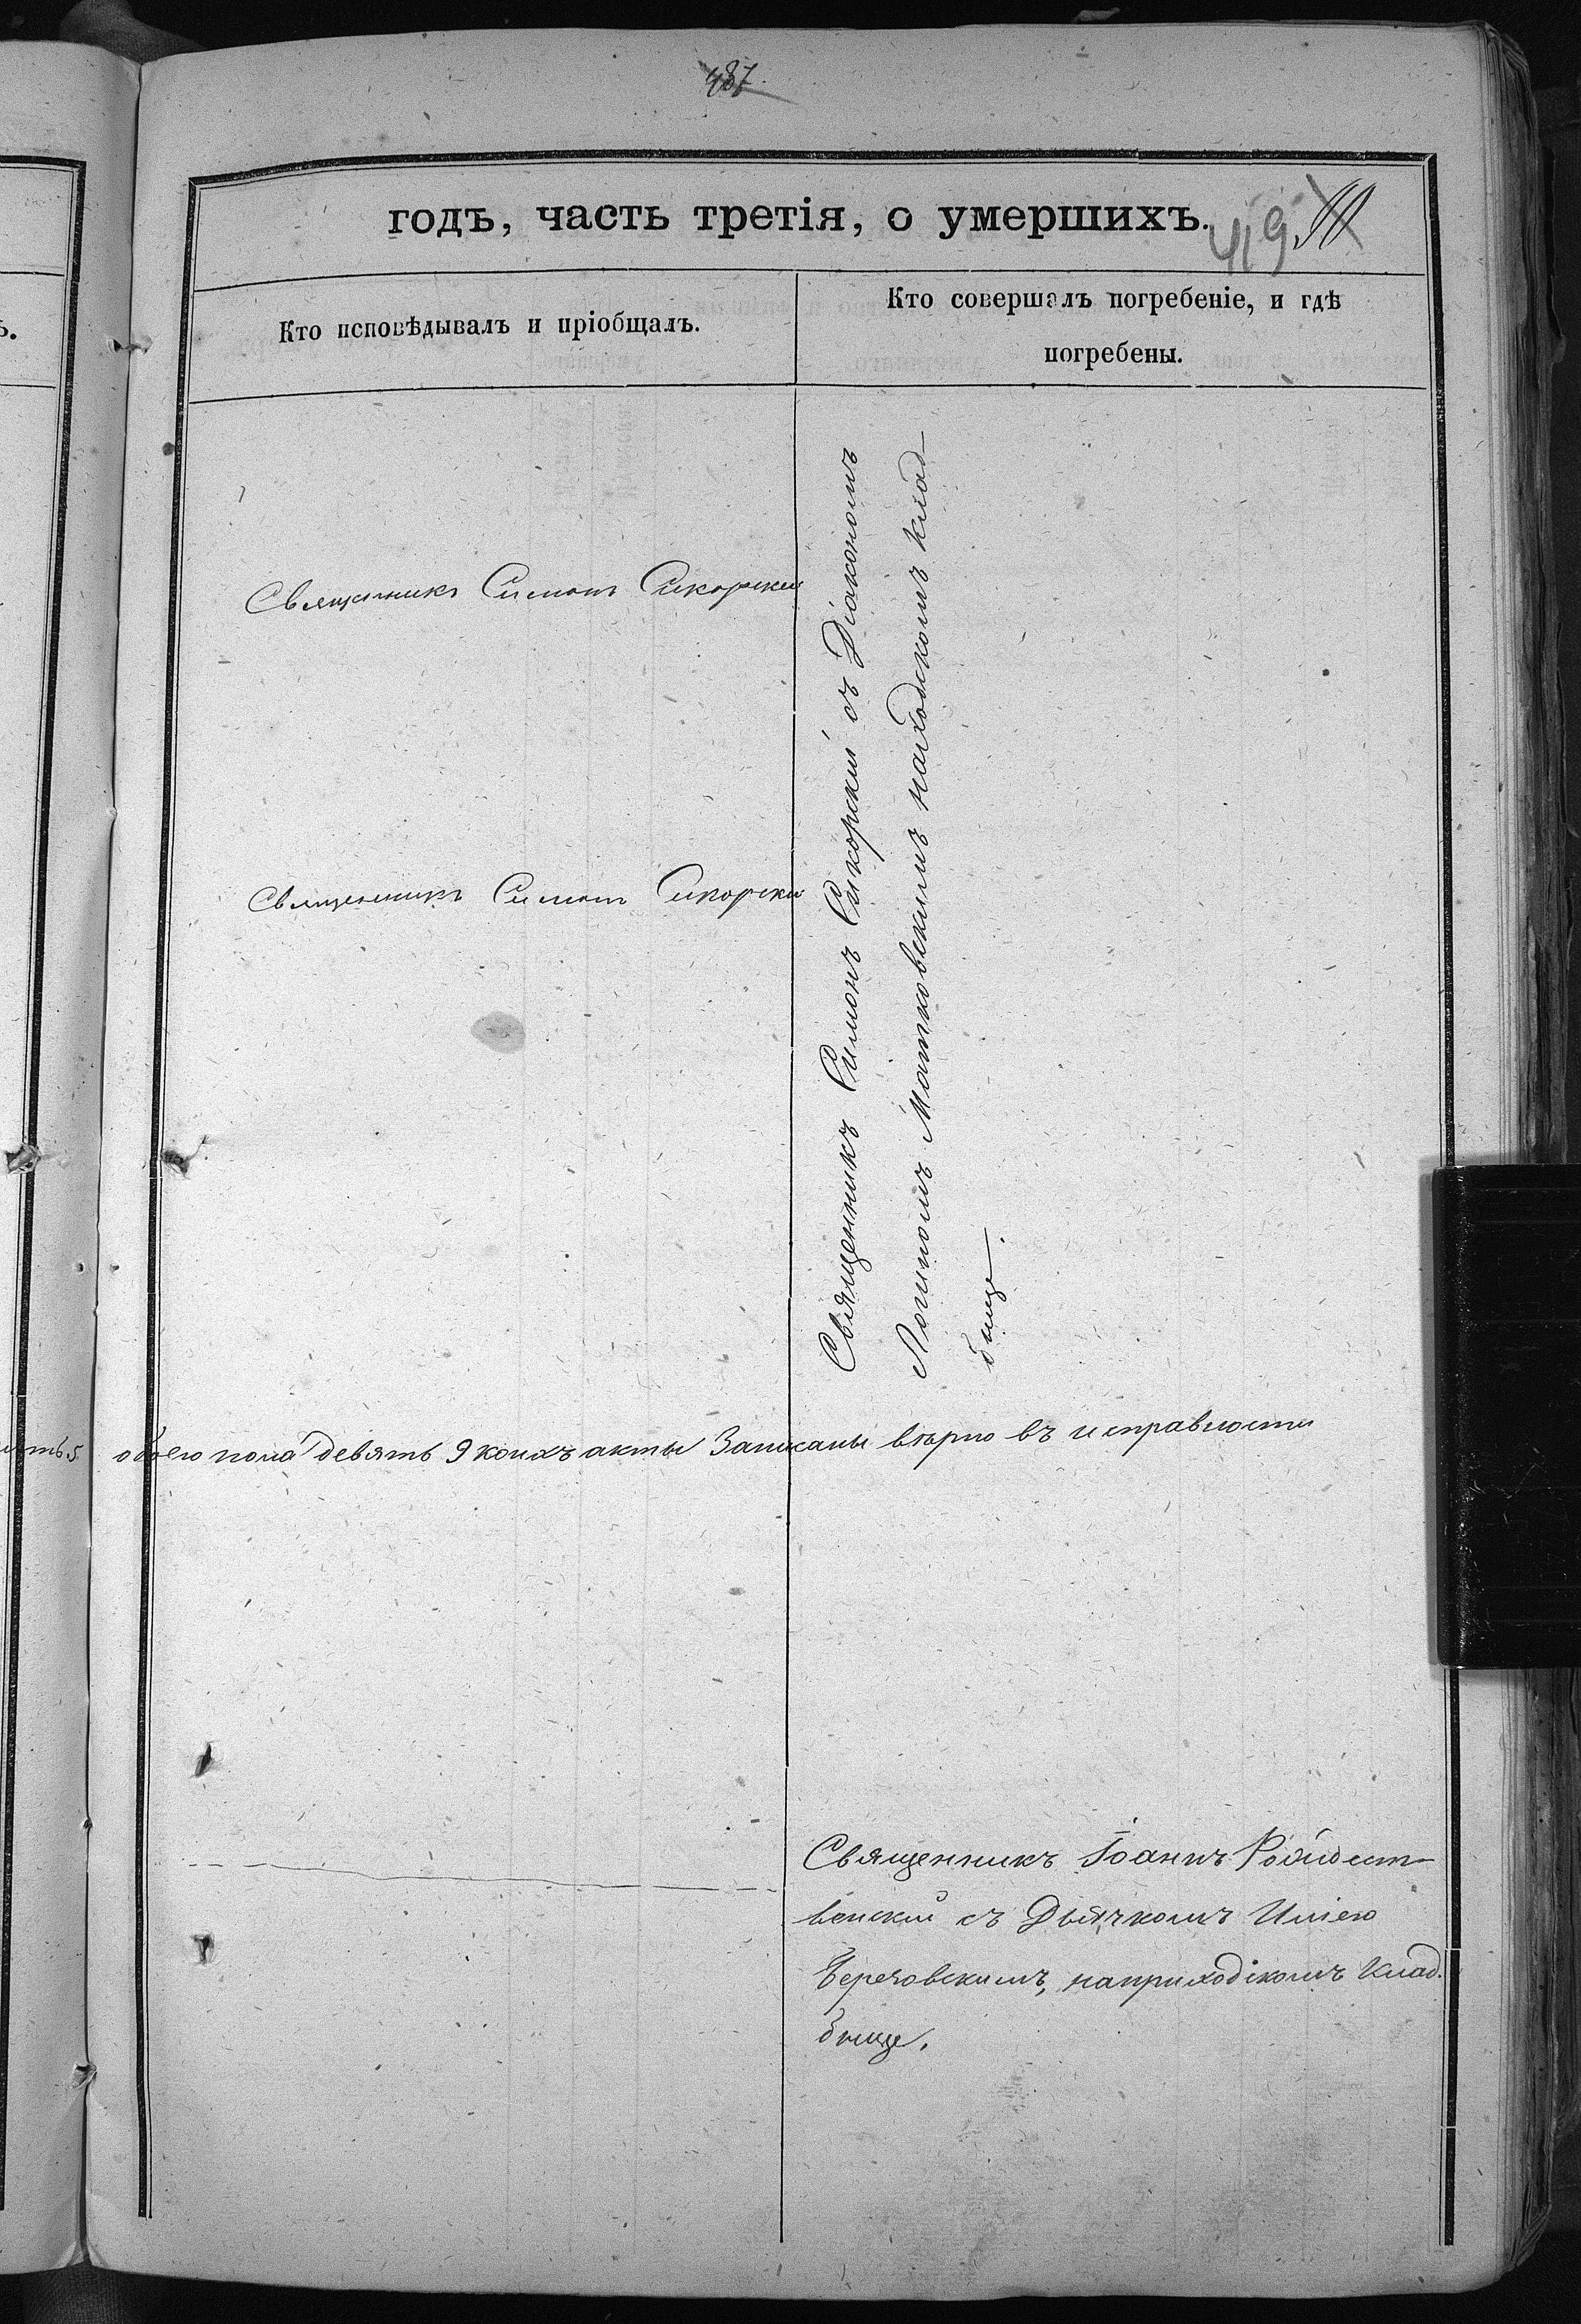 487
годъ, часть третія, о умершихъ.
419
Кто исповѣдывалъ и пріобщалъ.
Кто совершалъ погребеніе, и гдѣ
погребены.
Священникъ Симонъ Сикорскій
Священникъ Симонъ Сикорскій
Священникъ Симонъ Сикорскій съ Діакономъ
Логиномъ Матковскимъ на
клад
бище.
обоего пола девять 9 коихъ акты Записаны вѣрно въ исправности
Священникъ Іоаннъ Рождест
венскій съ Дьячкомъ Иліею
Березовскимъ, на приходскомъ Клад.
бище.